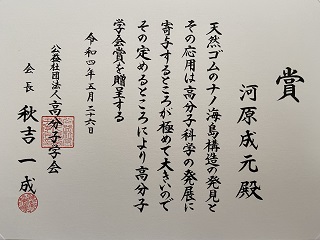 賞
河原成元殿
天然ゴムのナノ海島構造の発見と
その応用は高分子科学の発展に
寄与するところが極めて大きいので
その定めるところにより高分子
学会賞を贈呈する
令和四年五月二十六日
公益社団法人高分子学会
会長 秋吉一成